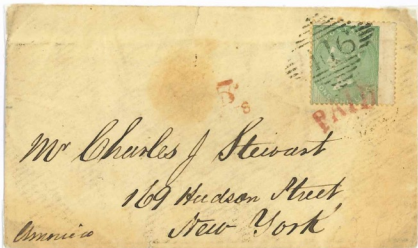 PAID
Mr Charles J Stewart
169 Hudson Street,
New York
America